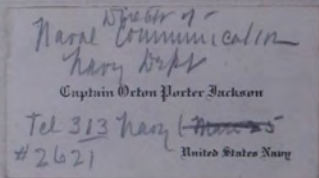 Director of -
Naval Communication
Navy Dept
Captain Orton Porter Jackson
Tel 313 Navy
# 2621
United States Navy